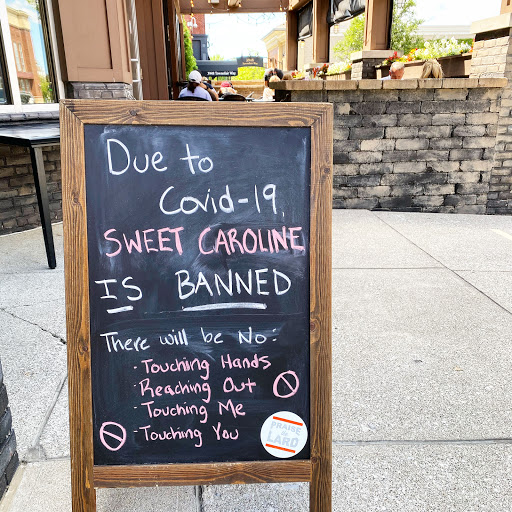 Due to
Covid-19,
SWEET CAROLINE
IS BANNED
There will be No:
· Touching Hands
· Reaching Out
· Touching Me
· Touching You
PRAISE
the
LARD